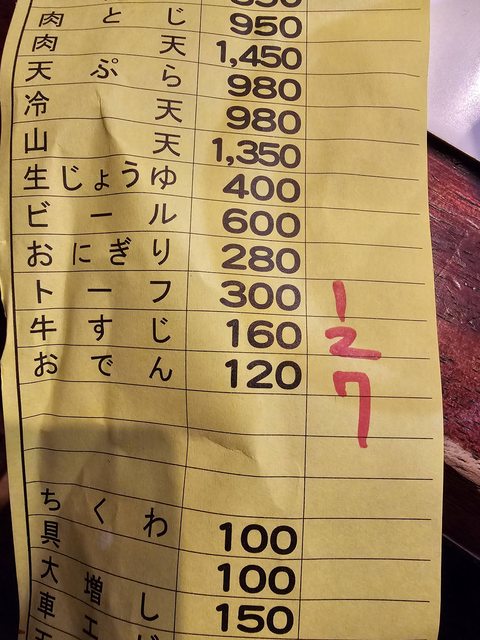 肉とじ 950
肉天 1,450
天ぷら 980
冷天 980
山天 1,350
生じょうゆ 400
ビール 600
おにぎり 280
トーフ 300 1
牛すじ 160 2
おでん 120 7
ちくわ 100
具 100
大増し 150
車エ